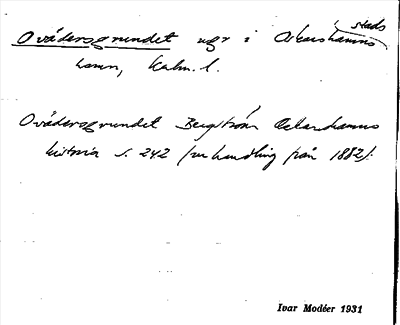 Ovädersgrundet ugr i Oskarshamns stads
hamn, Kalm. l.
Ovädersgrundet Bergström Oskarshamns
historia s. 242 (ur handling från 1882).
Ivar Modéer 1931